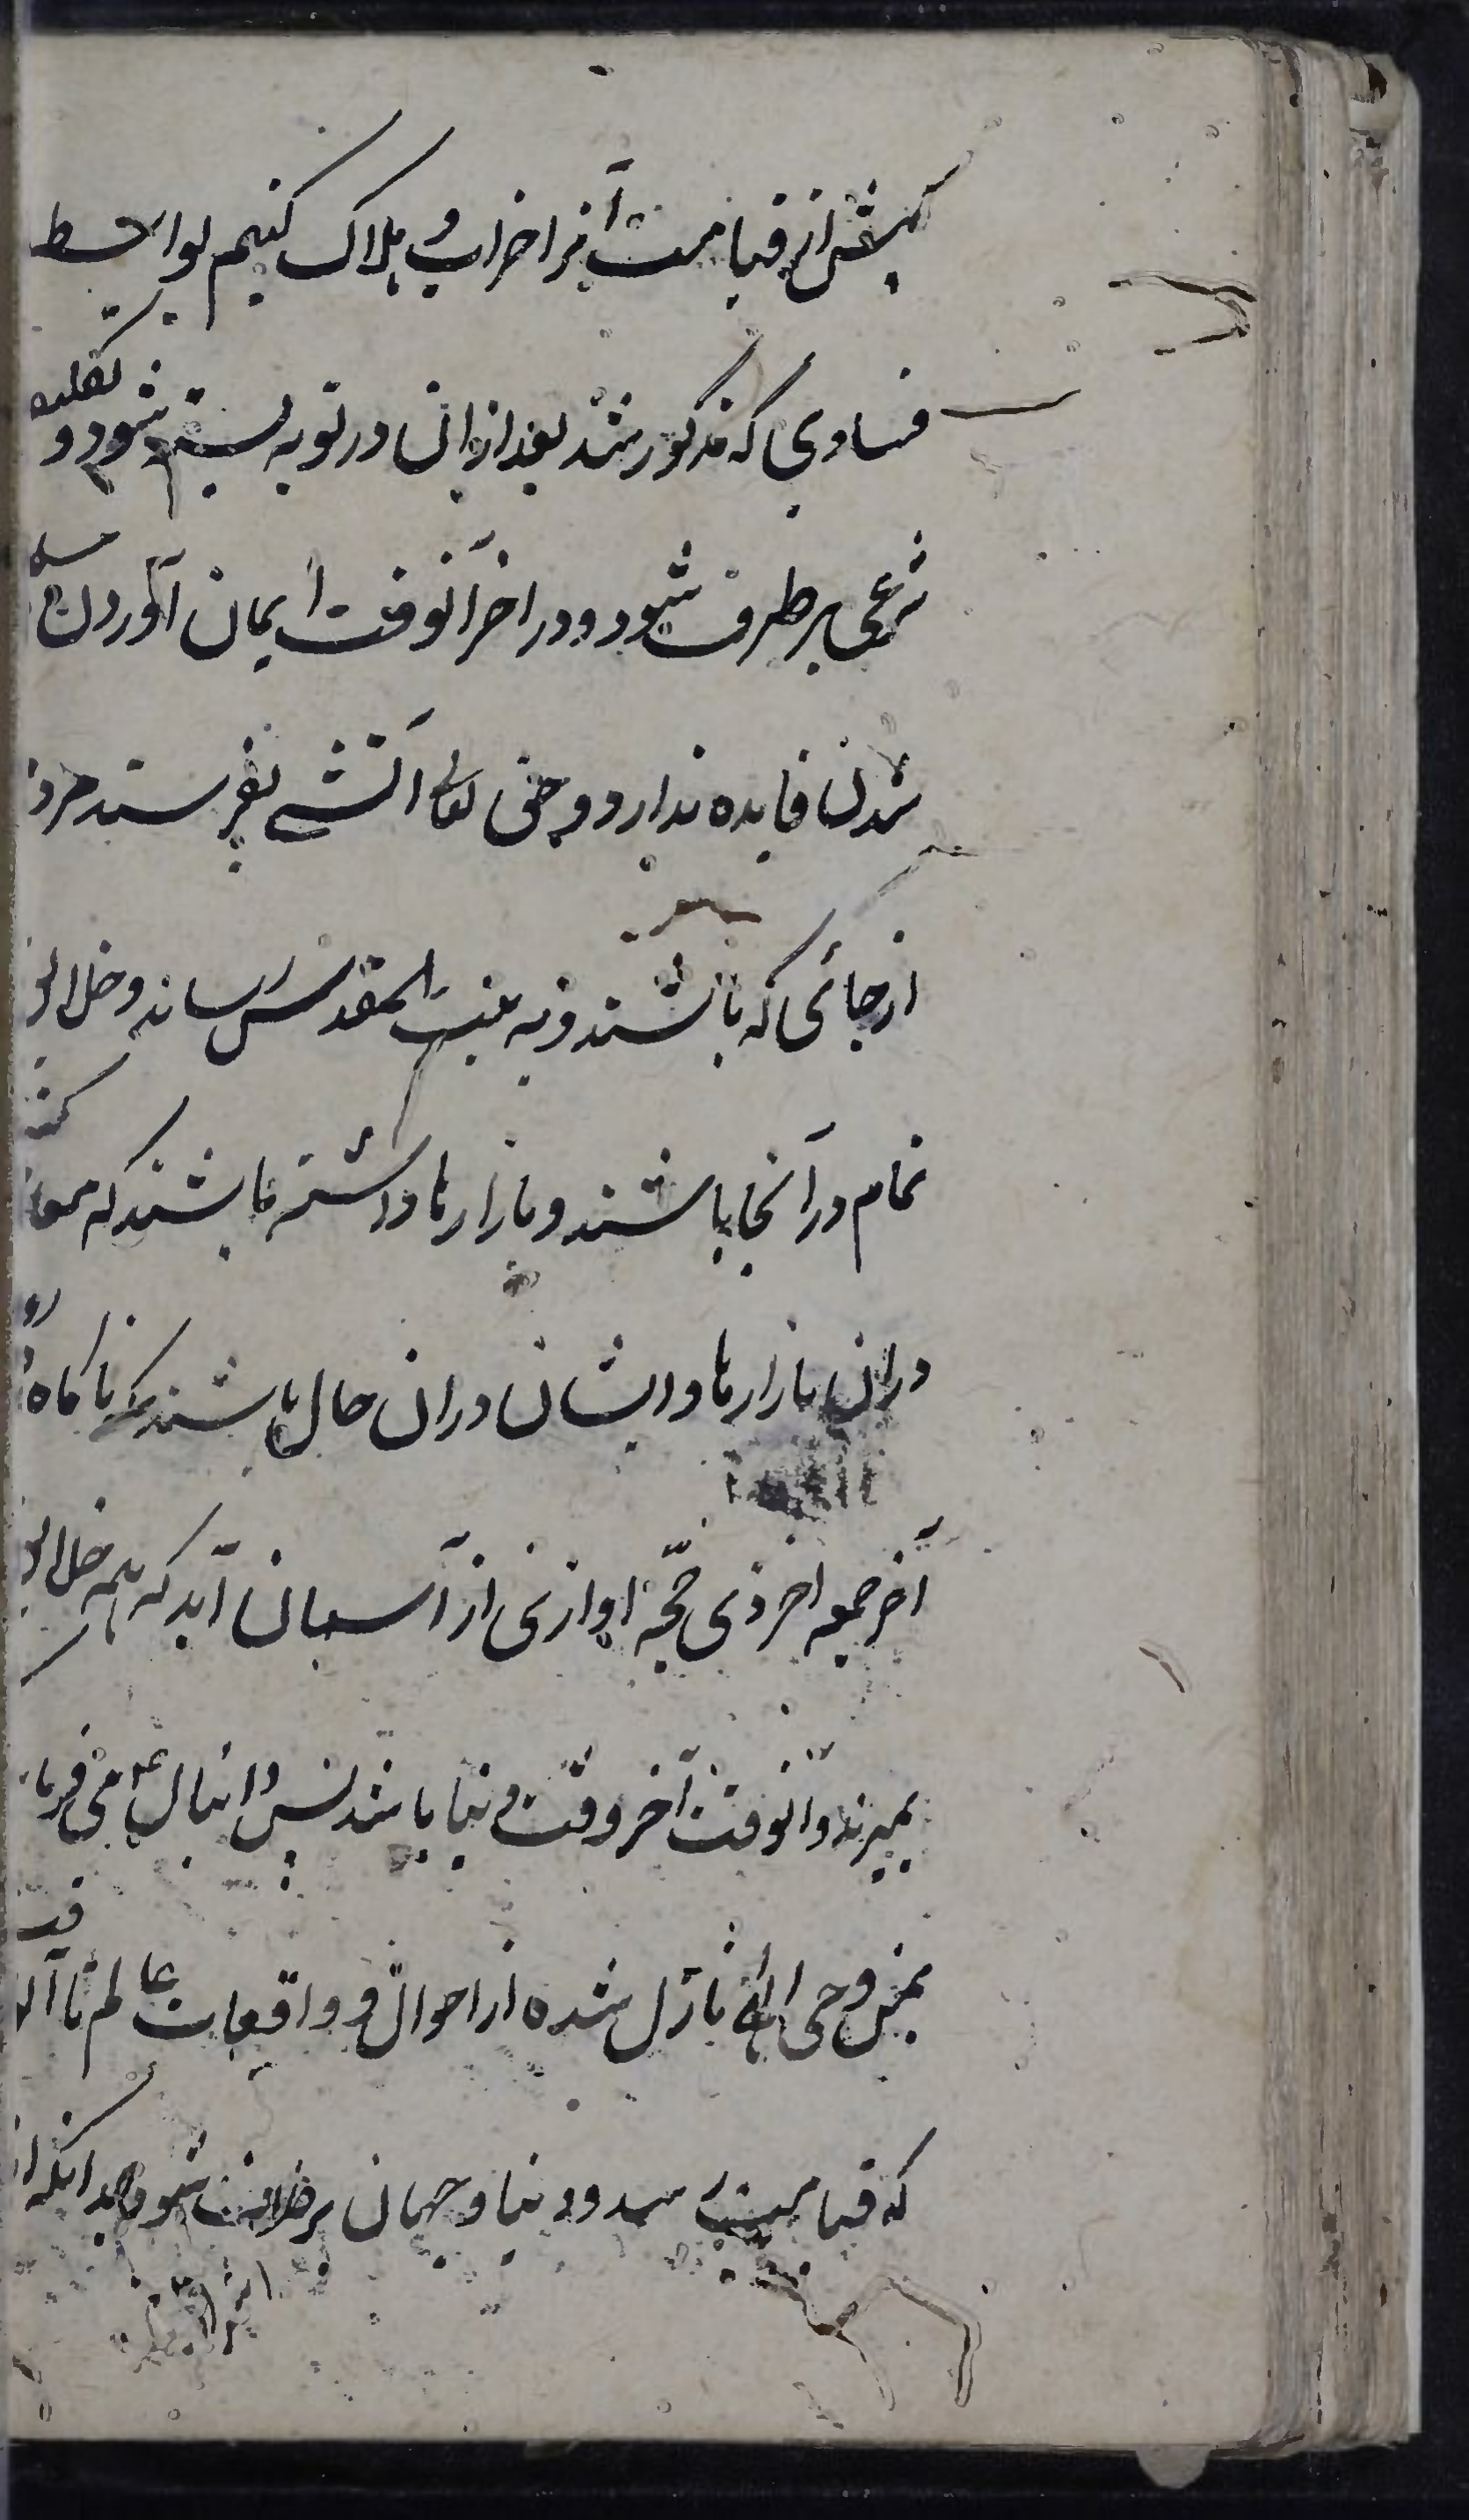 پیش از قیامت آنرا خراب و هلاک کنیم بواسطه
فسادی که مذکور شد بعد از ان در توبه بسته شود و تکلیف
شرعی برطرف شود و در اخر آنوقت ایمان آوردن
شدن فایده ندارد و حق تعالی آتشی بفرستد مردم
از جائی که باشند و به بیت المقدس رساند و خلایق
تمام در آنجا باشند و بازارها داشته باشند که
دران بازارها و ایشان دران حال باشند که ناکاه
آخر جمعه اخر ذی حجّه اوازی از آسمان آید که همه خلایق
بمیرند و آنوقت آخر وقت دنیا باشد پس دانیال ع می فرماید
بمن وحی الهی نازل شده از احوال و واقعات عالم تا
که قیامت رسد و دنیا و جهان برطرف شود بدانکه از